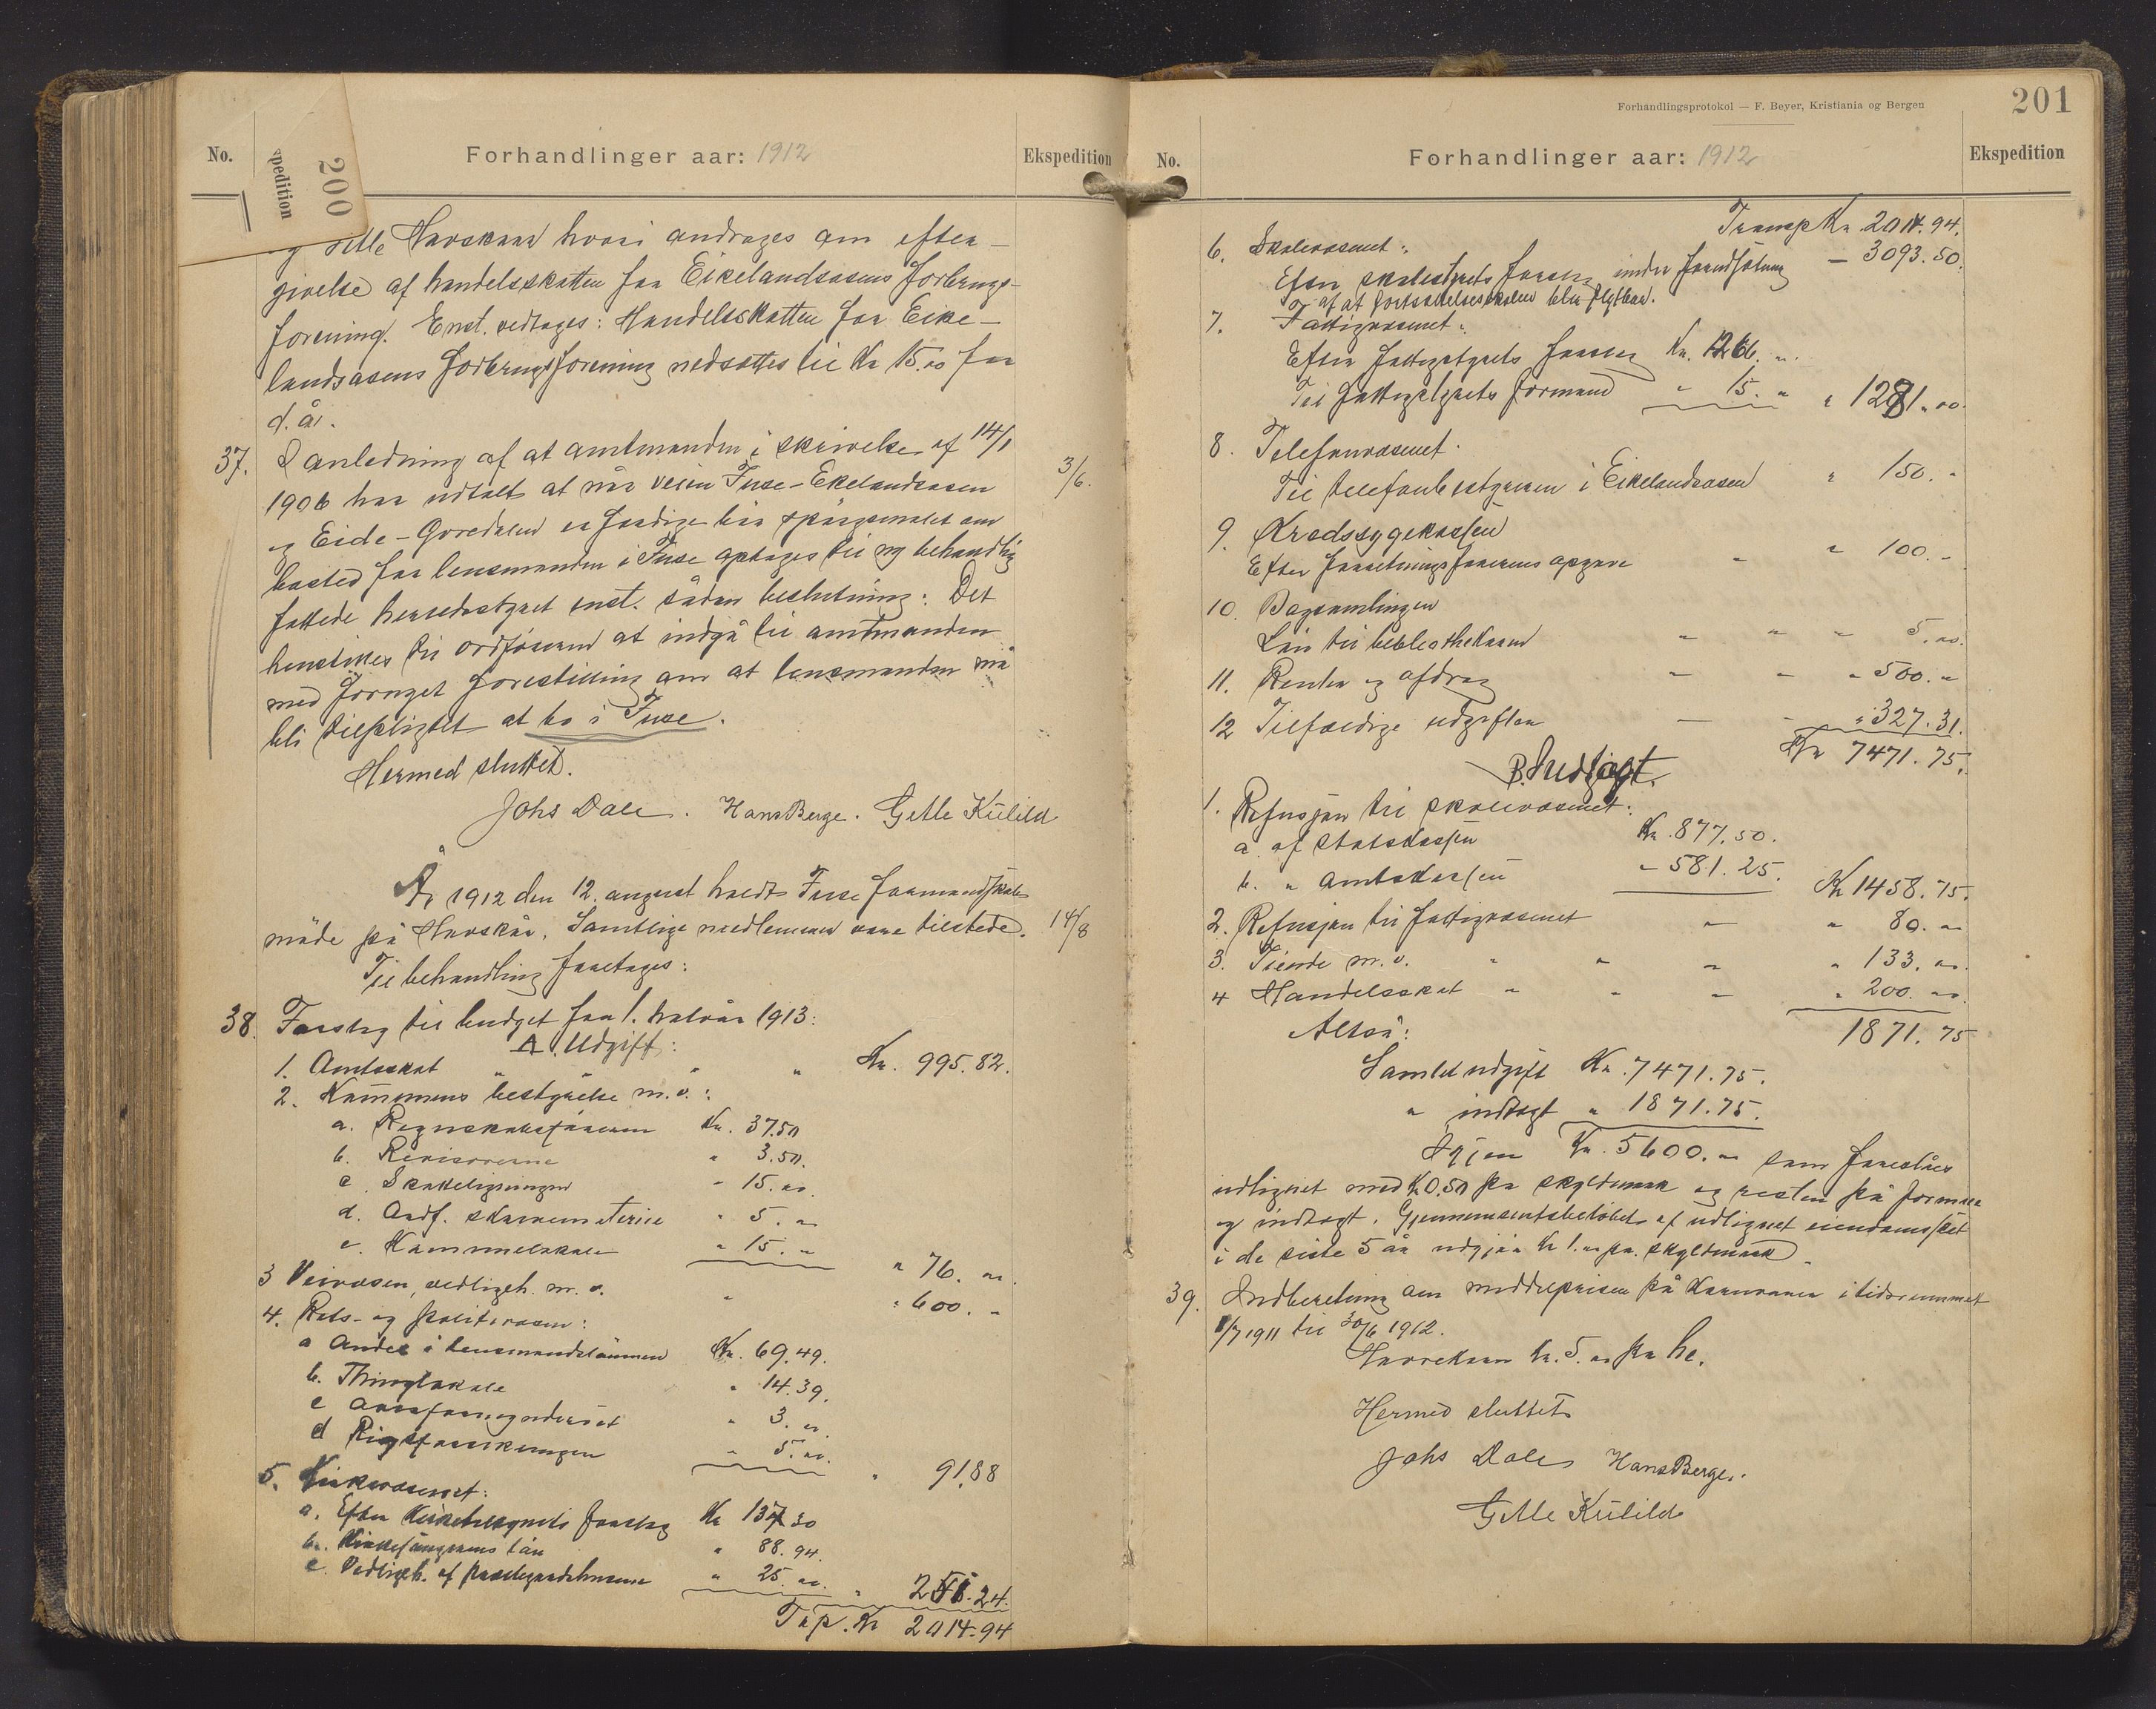 No.
200
spedition
Forhandlinger aar: 1912
Ekspedition
Havskaar hvori andrages om efter-
givelse af handelsskatten for Eikelandsosens forbrugs-
forening. Enst. vedtages: Handelsskatten for Eike-
landsosens forbrugsforening nedsættes til Kr 15.00 for
d. år.
37. I anledning af at amtmanden i skrivelse af 14/1
1906 har udtalt at når veien Fuse-Ekelandsosen
3/6.
og Eide-Gjøredalen er færdige bør spørgsmålet om
bosted for lensmanden i Fuse optages til ny behandling
fattede herredsstyret enst. sådan beslutning: Det
henstilles til ordføreren at indgå til amtmanden
med fornyet forestilling om at lensmanden må
bli tilpligtet at bo i Fuse.
Hermed sluttet.
Johs Dale. Hans Berge. Gitle Kulild
År 1912 den 12. august holdt Fuse formandskab
møde på Havskår. Samtlige medlemmer vare tilstede.
14/8
Til behandling foretages:
38. Forslag til budget for 1. halvår 1913:
A. Udgift:
1. Amtsskat " " " Kr. 995.82.
2. Kommunens bestyrelse m.v.:
a. Regnskabsføreren Kr. 37.50
b. Revisorerne " 3.50.
c. Skatteligningen " 15.00.
d. Ordf. skrivematerie " 5. "
e. Kommunelokale " 15. "
" 76. 00.
3 Veivæsen, vedligeh. m.v. " " 600. "
4. Rets- og politivæsen:
a Andel i lensmandslønnen Kr. 69.49.
b. Thinglokale " 14.39.
c " 3. 00.
d Rigsforsikringen " 5. 00.
" 91.88
5. Kirkevæsenet:
a. Efter Kirketilsynets forslag Kr 137.30
b. Kirkesangerens løn " 88.94.
c. Vedligeh. af prestegaardshusene " 25. 00.
" 251.24.
Trp. Kr 2014.94
Forhandlingsprotokol — F. Beyer, Kristiania og Bergen
201
No.
Forhandlinger aar: 1912
Ekspedition
Transp Kr. 2014.94.
6. Skolevæsenet:
Efter skolestyrets forslag under forudsætning — 3093.50.
af at fortsættelsesskolen blir flytbar.
7. Fattigvæsenet:
Efter fattigstyrets forslag Kr. 1266. "
Til fattigstyrets formand " 15. " " 1281.00.
8. Telefonvæsenet.
Til telefonbestyreren i Eikelandsosen " 150. "
9. Kredssygekassen
Efter forretningsførerens opgave " " 100. "
10. Bogsamlingen
Løn til bibliothekaren " " " 5.00.
11. Renter og afdrag " " " 500. "
12 Tilfældige udgifter — - " 327.31.
Kr 7471.75.
B. Indtægt.
1. Refusjon til skolevæsenet:
a. af Statskassen Kr. 877.50.
b. " Amtskassen " 581.25. Kr 1458.75.
2. Refusjon til fattigvæsenet " " 80. 00
3. Tiende m.v. " " " " 133. 00.
4 Handelsskat " " " " 200. 00.
1871.75
Altså:
Samlet udgift Kr. 7471.75.
" indtægt " 1871.75.
Igjen Kr. 5600. 00 som foreslåes
udlignet med K 0.50 pr skyldmark og resten på formue
og indtægt. Gjennemsnitsbeløbet af udlignet eiendomsskat
i de siste 5 år udgjør Kr 1.00 pr. skyldmark.
39. Indberetning om middelprisen på Kornvarer i tidsrummet
1/7 1911 til 30/6 1912.
Havrekorn Kr. 5.00 pr hl.
Hermed sluttet
Johs Dale Hans Berge.
Gitle Kulild